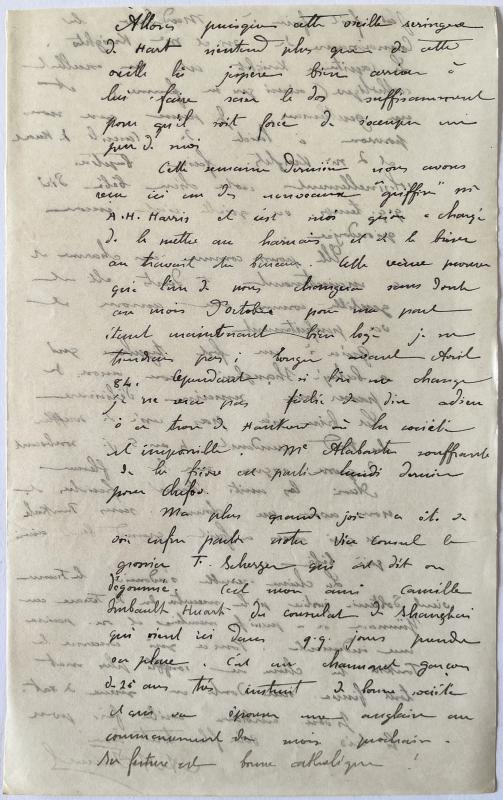 Allons puisque cette vieille seringue
de Hart n'entend plus que de cette
oreille là j'espère bien arriver à
lui faire scier le dos suffisamment
pour qu'il soit forcé de s'occuper un
peu de moi
Cette semaine dernière nous avons
reçu ici un des nouveaux "griffin" Mr
A. H. Harris et c'est moi qu'on a chargé
de le mettre au harnais et de le
au travail du bureau. Cette
qui l'un de nous changera sans doute
au mois d'octobre pour ma part
étant maintenant bien logé je ne
tiendrais pas à bouger avant Avril
84. Cependant si l'on me change
je ne serai pas fâché de dire adieu
à ce trou de Hankow où la société
est impossible. Me Alabaster souffrante
de la fièvre est partie lundi dernier
pour Chefoo.
Ma plus grande joie a été de
voir enfin partir notre Vice consul le
grossier F. Scherzer qui est dit on
dégommé, c'est mon ami Camille
Imbault Huart du consulat de Shanghai
qui vient ici dans q.q. jours prendre
sa place. C'est un charmant garçon
de 26 ans très instruit de bonne société
et qui va épouser une anglaise au
commencement du mois prochain.
Sa future est bonne catholique !